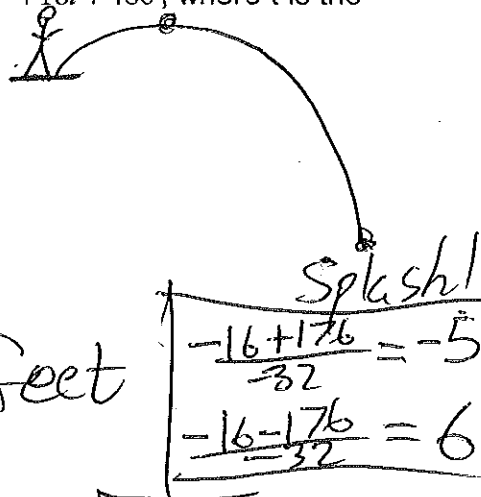 where t is the
Splash!
feet
-16+176
-32
= -5
-16-176
-32
= 6